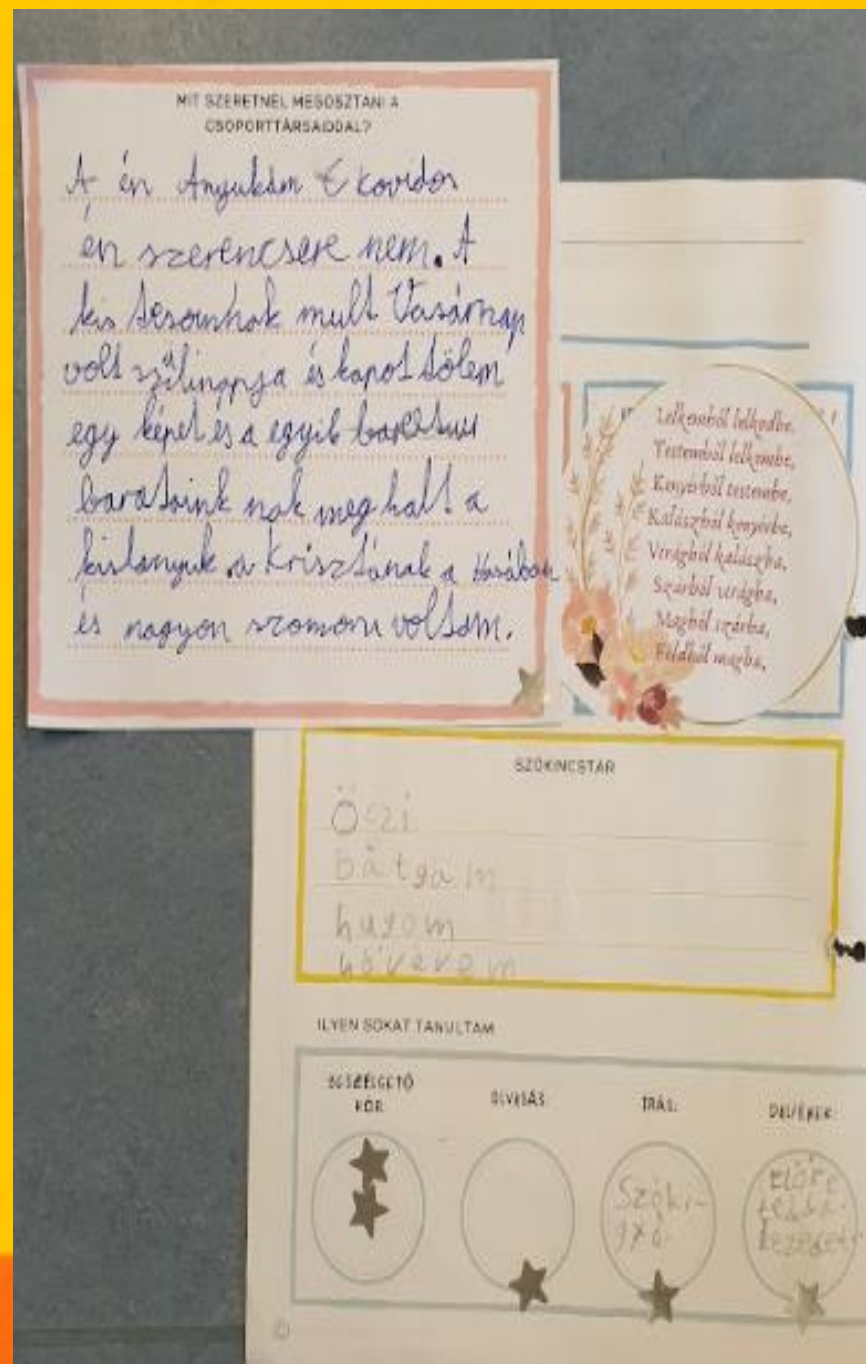 MIT SZERETNÉL MEGOSZTANI A
CSOPORTTÁRSAIDDAL?
A én Anyukám kovidos
én szerencsere nem. A
kis tesomnak mult Vasárnap
volt szülinapja és kapot tőlem
egy képet és a egyik
baratoink nak meg halt a
kislanyuk a Krisztának a Hasában
és nagyon szomoru voltam.
Lelkemből lelkedbe,
Testemből lelkembe,
Kenyérből testembe,
Kalászból kenyérbe,
Virágból kalászba,
Szárból virágba,
Magból szárba,
Földből magba,
SZÓKINCSTÁR
Öcsi
bátyám
hugom
nővérem
ILYEN SOKAT TANULTAM
BESZÉLGETŐ
KÖR:
OLVASÁS:
ÍRÁS:
DAL/ÉNEK:
Szóki-